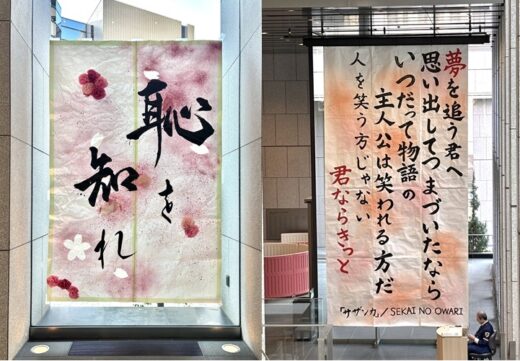 恥を
知れ
夢を追う君へ
思い出してつまづいたなら
いつだって物語の
主人公は笑われる方だ
人を笑う方じゃない
君ならきっと
「サザンカ」/SEKAI NO OWARI